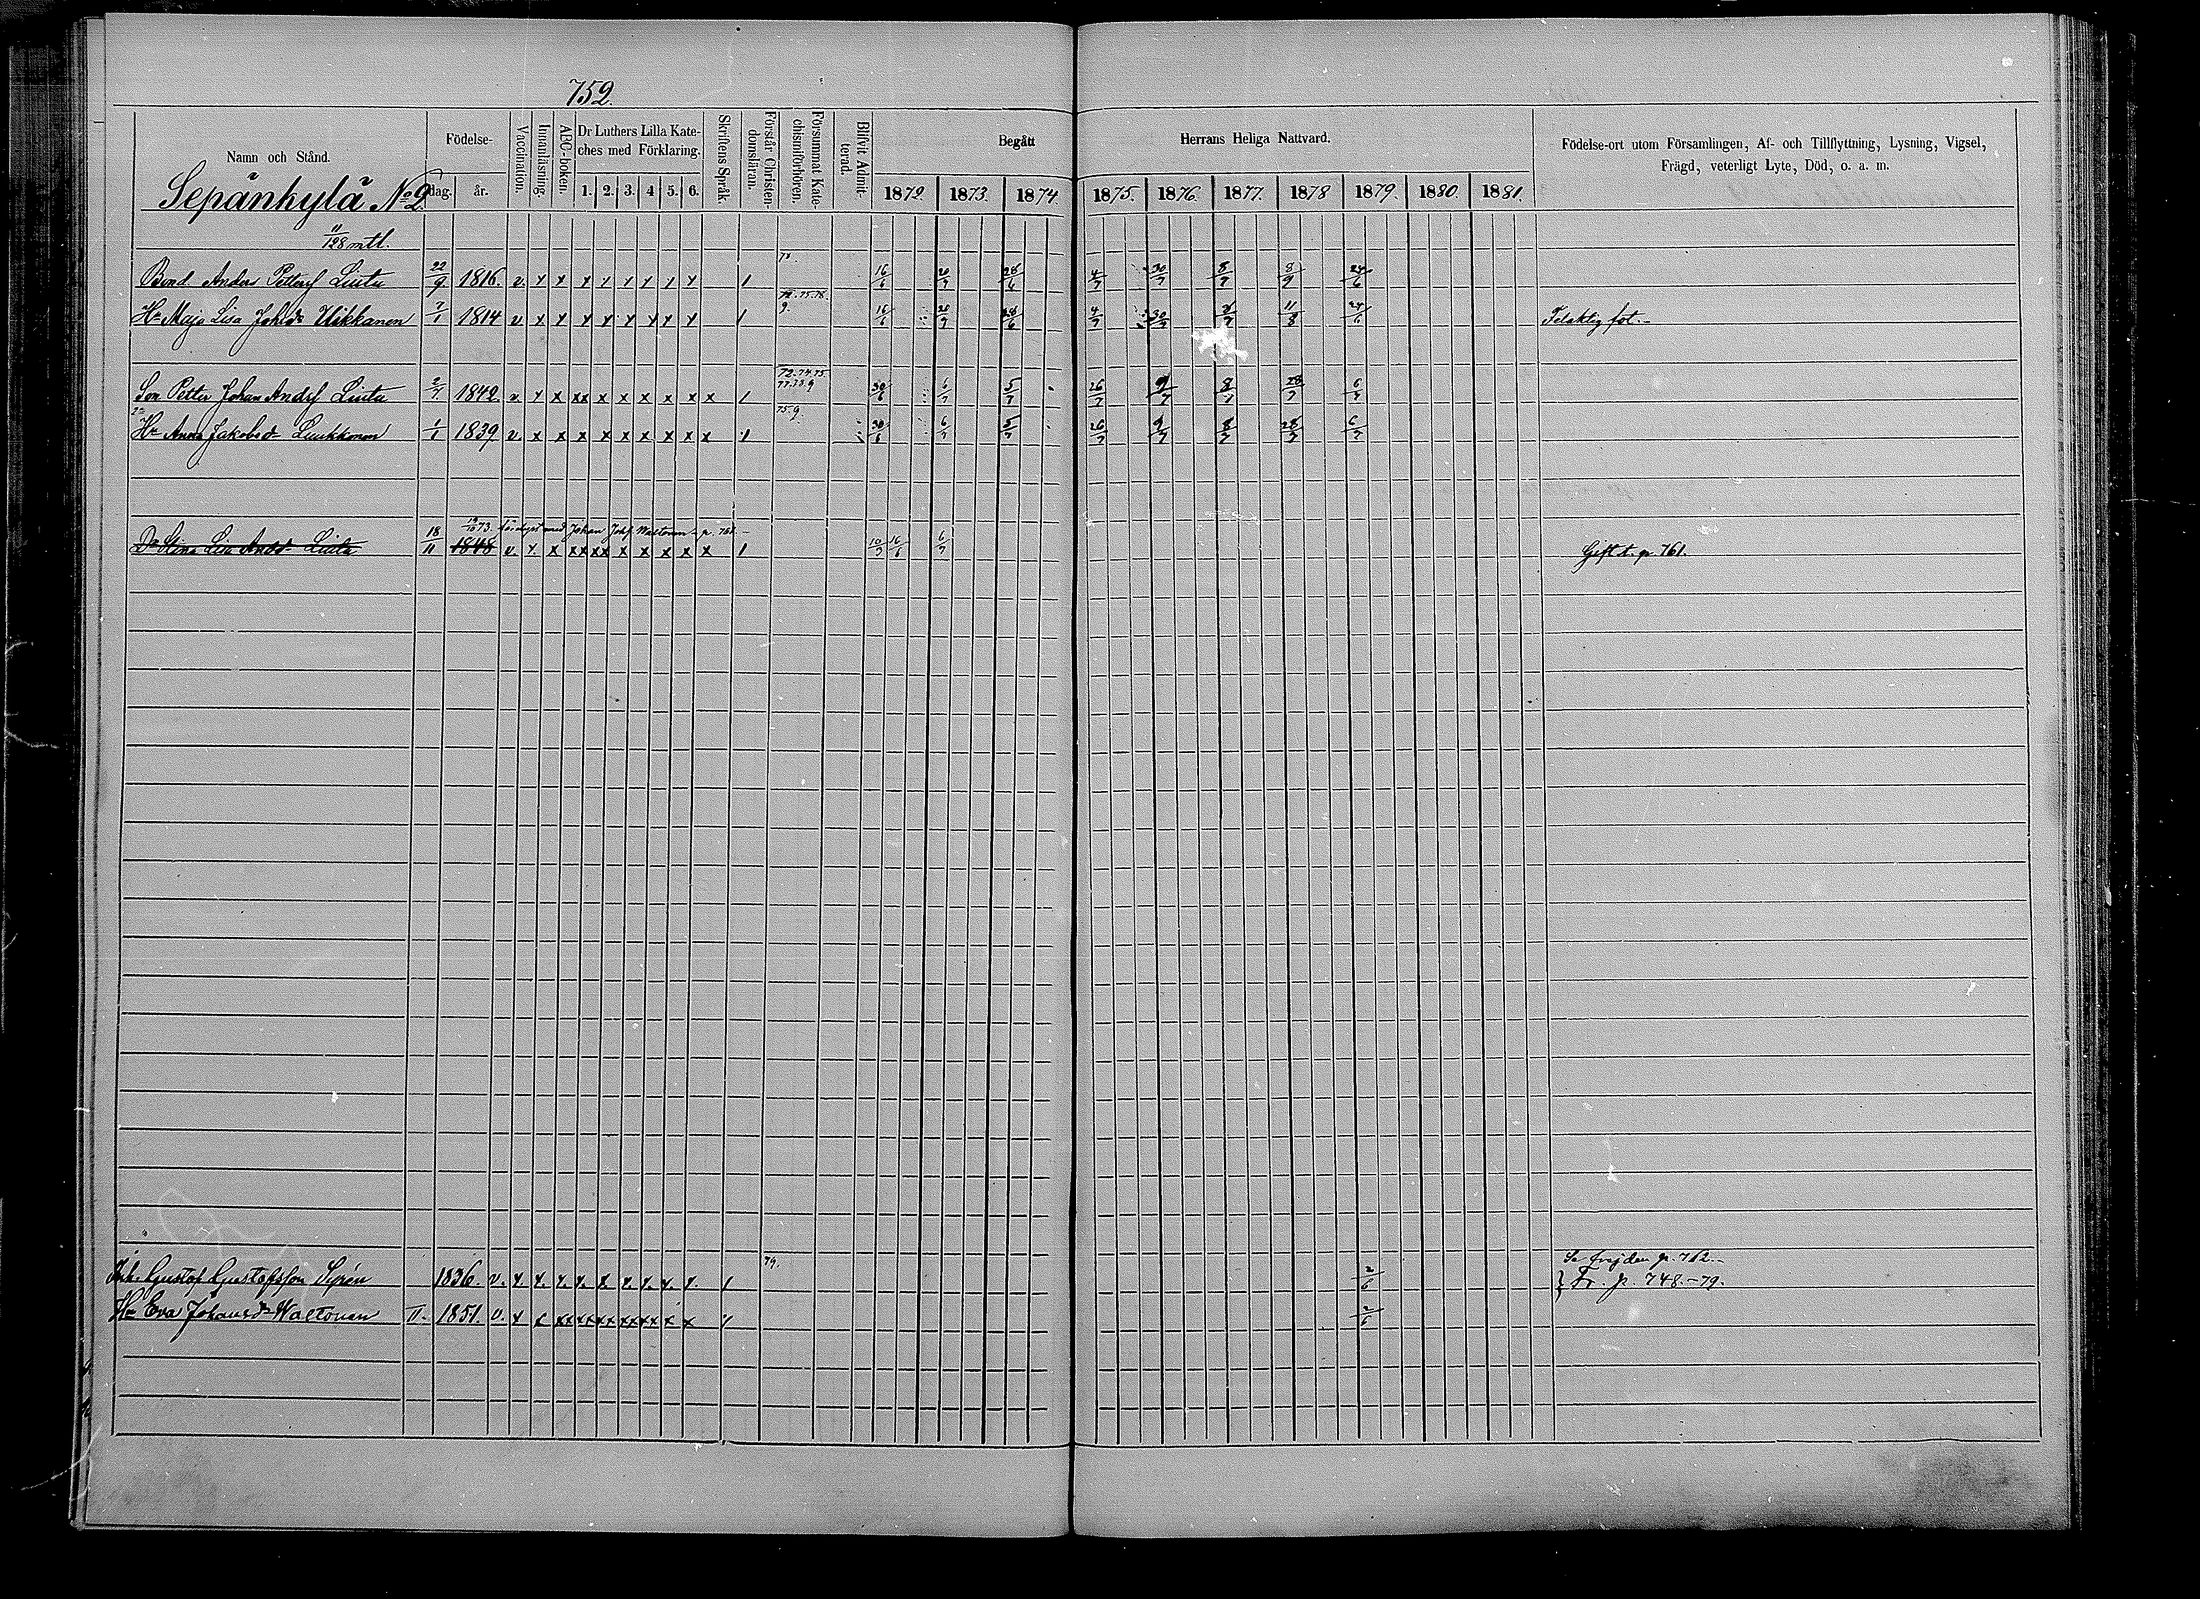 752.
Namn och Stånd.
Födelse-
dag. år.
Vaccination.
Innanläsning.
ABC-boken.
Dr Luthers Lilla Kate-
ches med Förklaring.
1. 2. 3. 4 5. 6.
Skriftens Språk.
Förstår Christen-
domsläran.
Försummat Kate-
chismiförhören.
Blifvit Admit-
terad.
Begått Herrans Heliga Nattvard.
1872. 1873. 1874 1875. 1876. 1877. 1878 1879. 1880. 1881.
Födelse-ort utom Församlingen, Af- och Tillflyttning, Lysning, Vigsel,
Frägd, veterligt Lyte, Död, o. a. m.
Sepänkylä No 2
11/128 mtl.
Bond Anders Petterss Liuta 22/9 1816. v. x x x x x x x x 1 16/6 20/7 28/6 4/7 30/7 8/7 8/9 24/6
Hu Maja Lisa Johsdr Uikkanen 7/1 1814 v x x x x x x x x 1 16/6 4/7 30/7 11/8 24/6
72.75.78.
9.
72.74.75
77.78.9
Son Petter Johan Anders Liuta 2/7 1842 v x x xx x x x x x x 1 30/6 6/7 5/7 26/7 9/7 28/7 6/7
75.9.
Hu Anna Jakobsd Luukkonen 1/1 1839 v. x x x x x x x x x 1 30/6 6/7 5/7 26/7 9/7 8/7 28/7 6/7
73. med Johan Waltonen p. 761.
Dr Stina Lisa Andd Liuta 18/11 1848 v. x x xx xx x x x x x 1 10/7 16/6 6/7
Gift t. p. 761.
79.
Se frejden p. 762.
Inh. Gustaf Gustafsson Syrén 1836. v. x. x. x. x. x. x. x. x. x. 1 2/6 } Fr. p. 748.-79.
Hu Eva Johansdr Waltonen II. 1851. v. x x xx xx xx xx xx x x 2/6